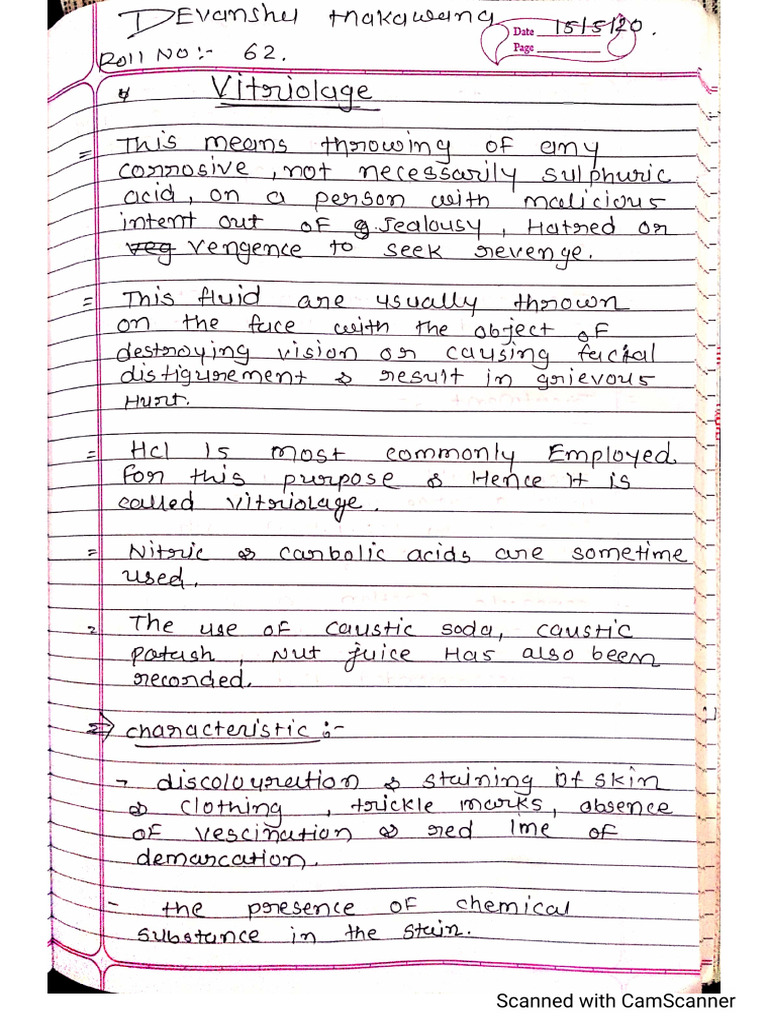 Devanshu Thakawana
Date 15/5/20.
Page
Roll No:- 62.
Vitriolage
= This means throwing of any
corrosive, not necessarily sulphuric
acid, on a person with malicious
intent out of Jealousy, Hatred or
veg vengence to seek revenge.
= This fluid are usually thrown
on the face with the object of
destroying vision or causing facial
disfigurement & result in grievous
Hurt.
= Hcl is most commonly Employed
for this purpose & Hence It is
called vitriolage.
= Nitric & carbolic acids are sometime
used.
= The use of caustic soda, caustic
potash, Nut juice Has also been
recorded.
=> characteristic :-
- discolouration & staining of skin
& clothing, trickle marks, absence
of vescination & red line of
demarcation.
- the presence of chemical
substance in the stain.
Scanned with CamScanner